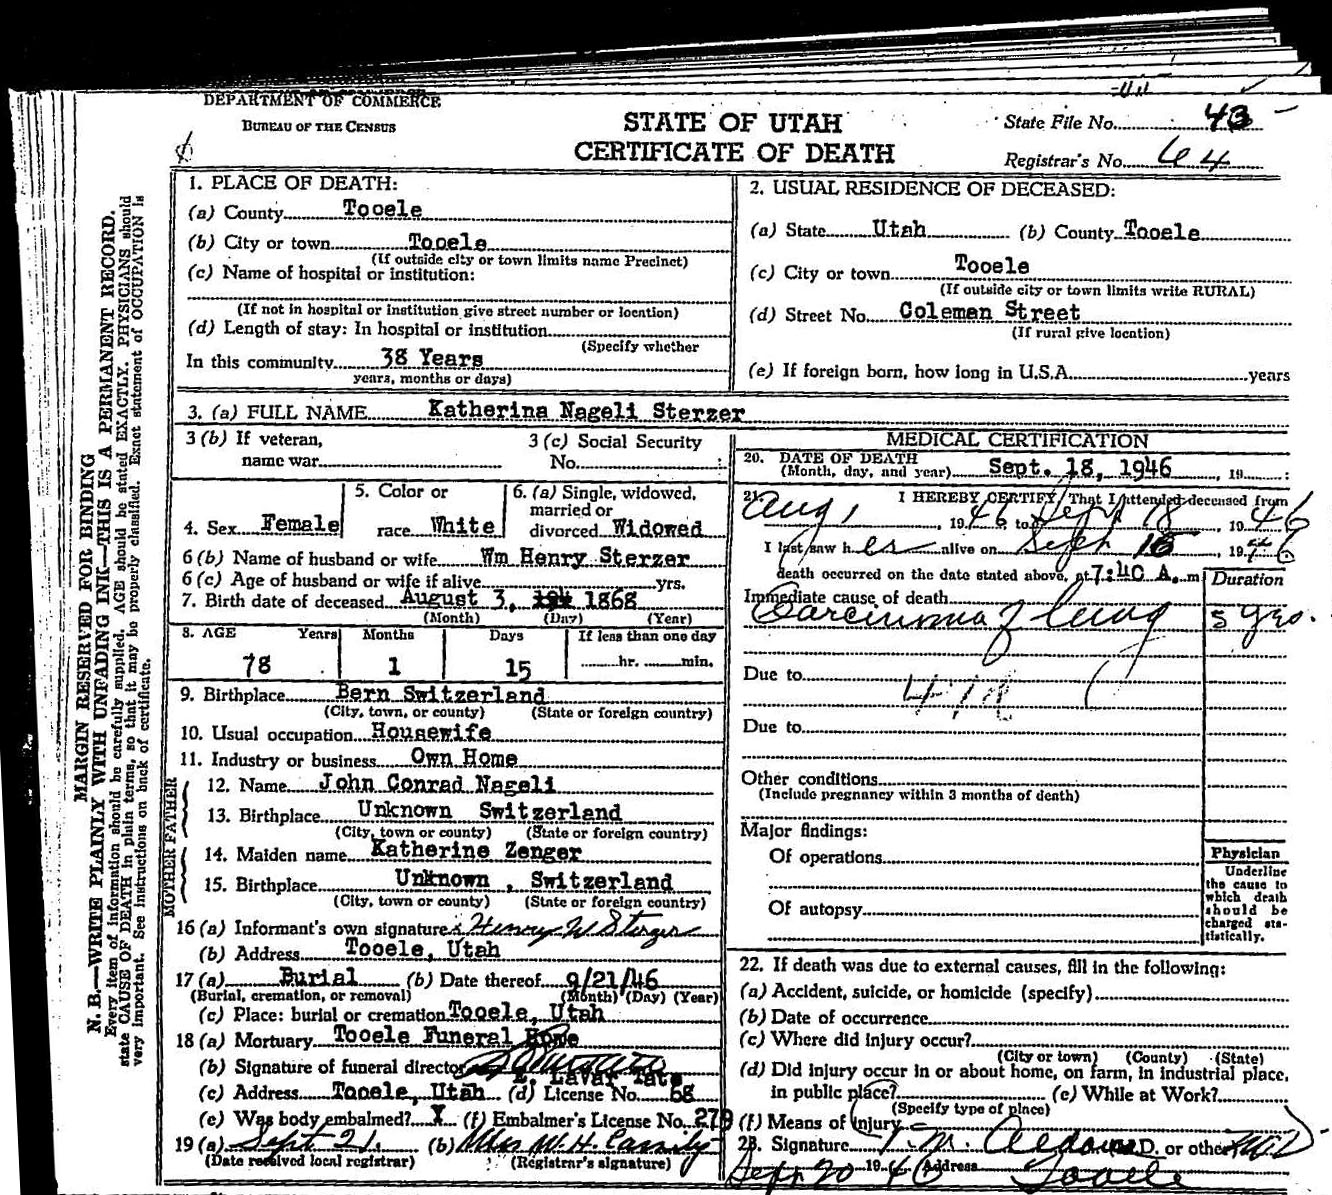 DEPARTMENT OF COMMERCE
BUREAU OF THE CENSUS
STATE OF UTAH
CERTIFICATE OF DEATH
State File No. 43
Registrar's No. 64
MARGIN RESERVED FOR BINDING
N. B.—WRITE PLAINLY WITH UNFADING INK—THIS IS A PERMANENT RECORD.
Every item of information should be carefully supplied. AGE should be stated EXACTLY. PHYSICIANS should
state CAUSE OF DEATH in plain terms, so that it may be properly classified. Exact statement of OCCUPATION is
very important. See instructions on back of certificate.
1. PLACE OF DEATH:
(a) County Tooele
(b) City or town Tooele
(If outside city or town limits name Precinct)
(c) Name of hospital or institution:
(If not in hospital or institution give street number or location)
(d) Length of stay: In hospital or institution
(Specify whether
In this community 38 Years
years, months or days)
2. USUAL RESIDENCE OF DECEASED:
(a) State Utah (b) County Tooele
(c) City or town Tooele
(If outside city or town limits write RURAL)
(d) Street No. Coleman Street
(If rural give location)
(e) If foreign born, how long in U.S.A. years
3. (a) FULL NAME Katherina Nageli Sterzer
3 (b) If veteran,
name war
3 (c) Social Security
No.
4. Sex Female
5. Color or
race White
6. (a) Single, widowed,
married or
divorced Widowed
6 (b) Name of husband or wife Wm Henry Sterzer
6 (c) Age of husband or wife if alive yrs.
7. Birth date of deceased August 3, 1868
(Month) (Day) (Year)
8. AGE Years Months Days If less than one day
78 1 15 hr. min.
9. Birthplace Bern Switzerland
(City, town, or county) (State or foreign country)
10. Usual occupation Housewife
11. Industry or business Own Home
FATHER
12. Name John Conrad Nageli
13. Birthplace Unknown Switzerland
(City, town or county) (State or foreign country)
MOTHER
14. Maiden name Katherine Zenger
15. Birthplace Unknown , Switzerland
(City, town or county) (State or foreign country)
16 (a) Informant's own signature x Henry W Sterzer
(b) Address Tooele, Utah
17 (a) Burial (b) Date thereof 9/21/46
(Burial, cremation, or removal) (Month) (Day) (Year)
(c) Place: burial or cremation Tooele, Utah
18 (a) Mortuary Tooele Funeral Home
(b) Signature of funeral director
E. LaVar Tate
(c) Address Tooele, Utah (d) License No. 68
(e) Was body embalmed? X (f) Embalmer's License No. 279
19 (a) Sept 21. (b) Mrs W. H. Cassity
(Date received local registrar) (Registrar's signature)
MEDICAL CERTIFICATION
20. DATE OF DEATH
(Month, day, and year) Sept. 18, 1946 , 19 :
21. I HEREBY CERTIFY, That I attended deceased from
Aug 1 , 1946 to Sept 18 , 1946
I last saw her alive on Sept 18 , 1946
death occurred on the date stated above, at 7:40 A. m
Duration
Immediate cause of death
Carcinoma of lung 5 yrs.
Due to
Due to
Other conditions
(Include pregnancy within 3 months of death)
Major findings:
Of operations
Of autopsy
Physician
Underline
the cause to
which death
should be
charged sta-
tistically.
22. If death was due to external causes, fill in the following:
(a) Accident, suicide, or homicide (specify)
(b) Date of occurrence
(c) Where did injury occur?
(City or town) (County) (State)
(d) Did injury occur in or about home, on farm, in industrial place,
in public place? (e) While at Work?
(Specify type of place)
(f) Means of injury
23. Signature M.D. or other MD
Sept 20 1946 Address Tooele